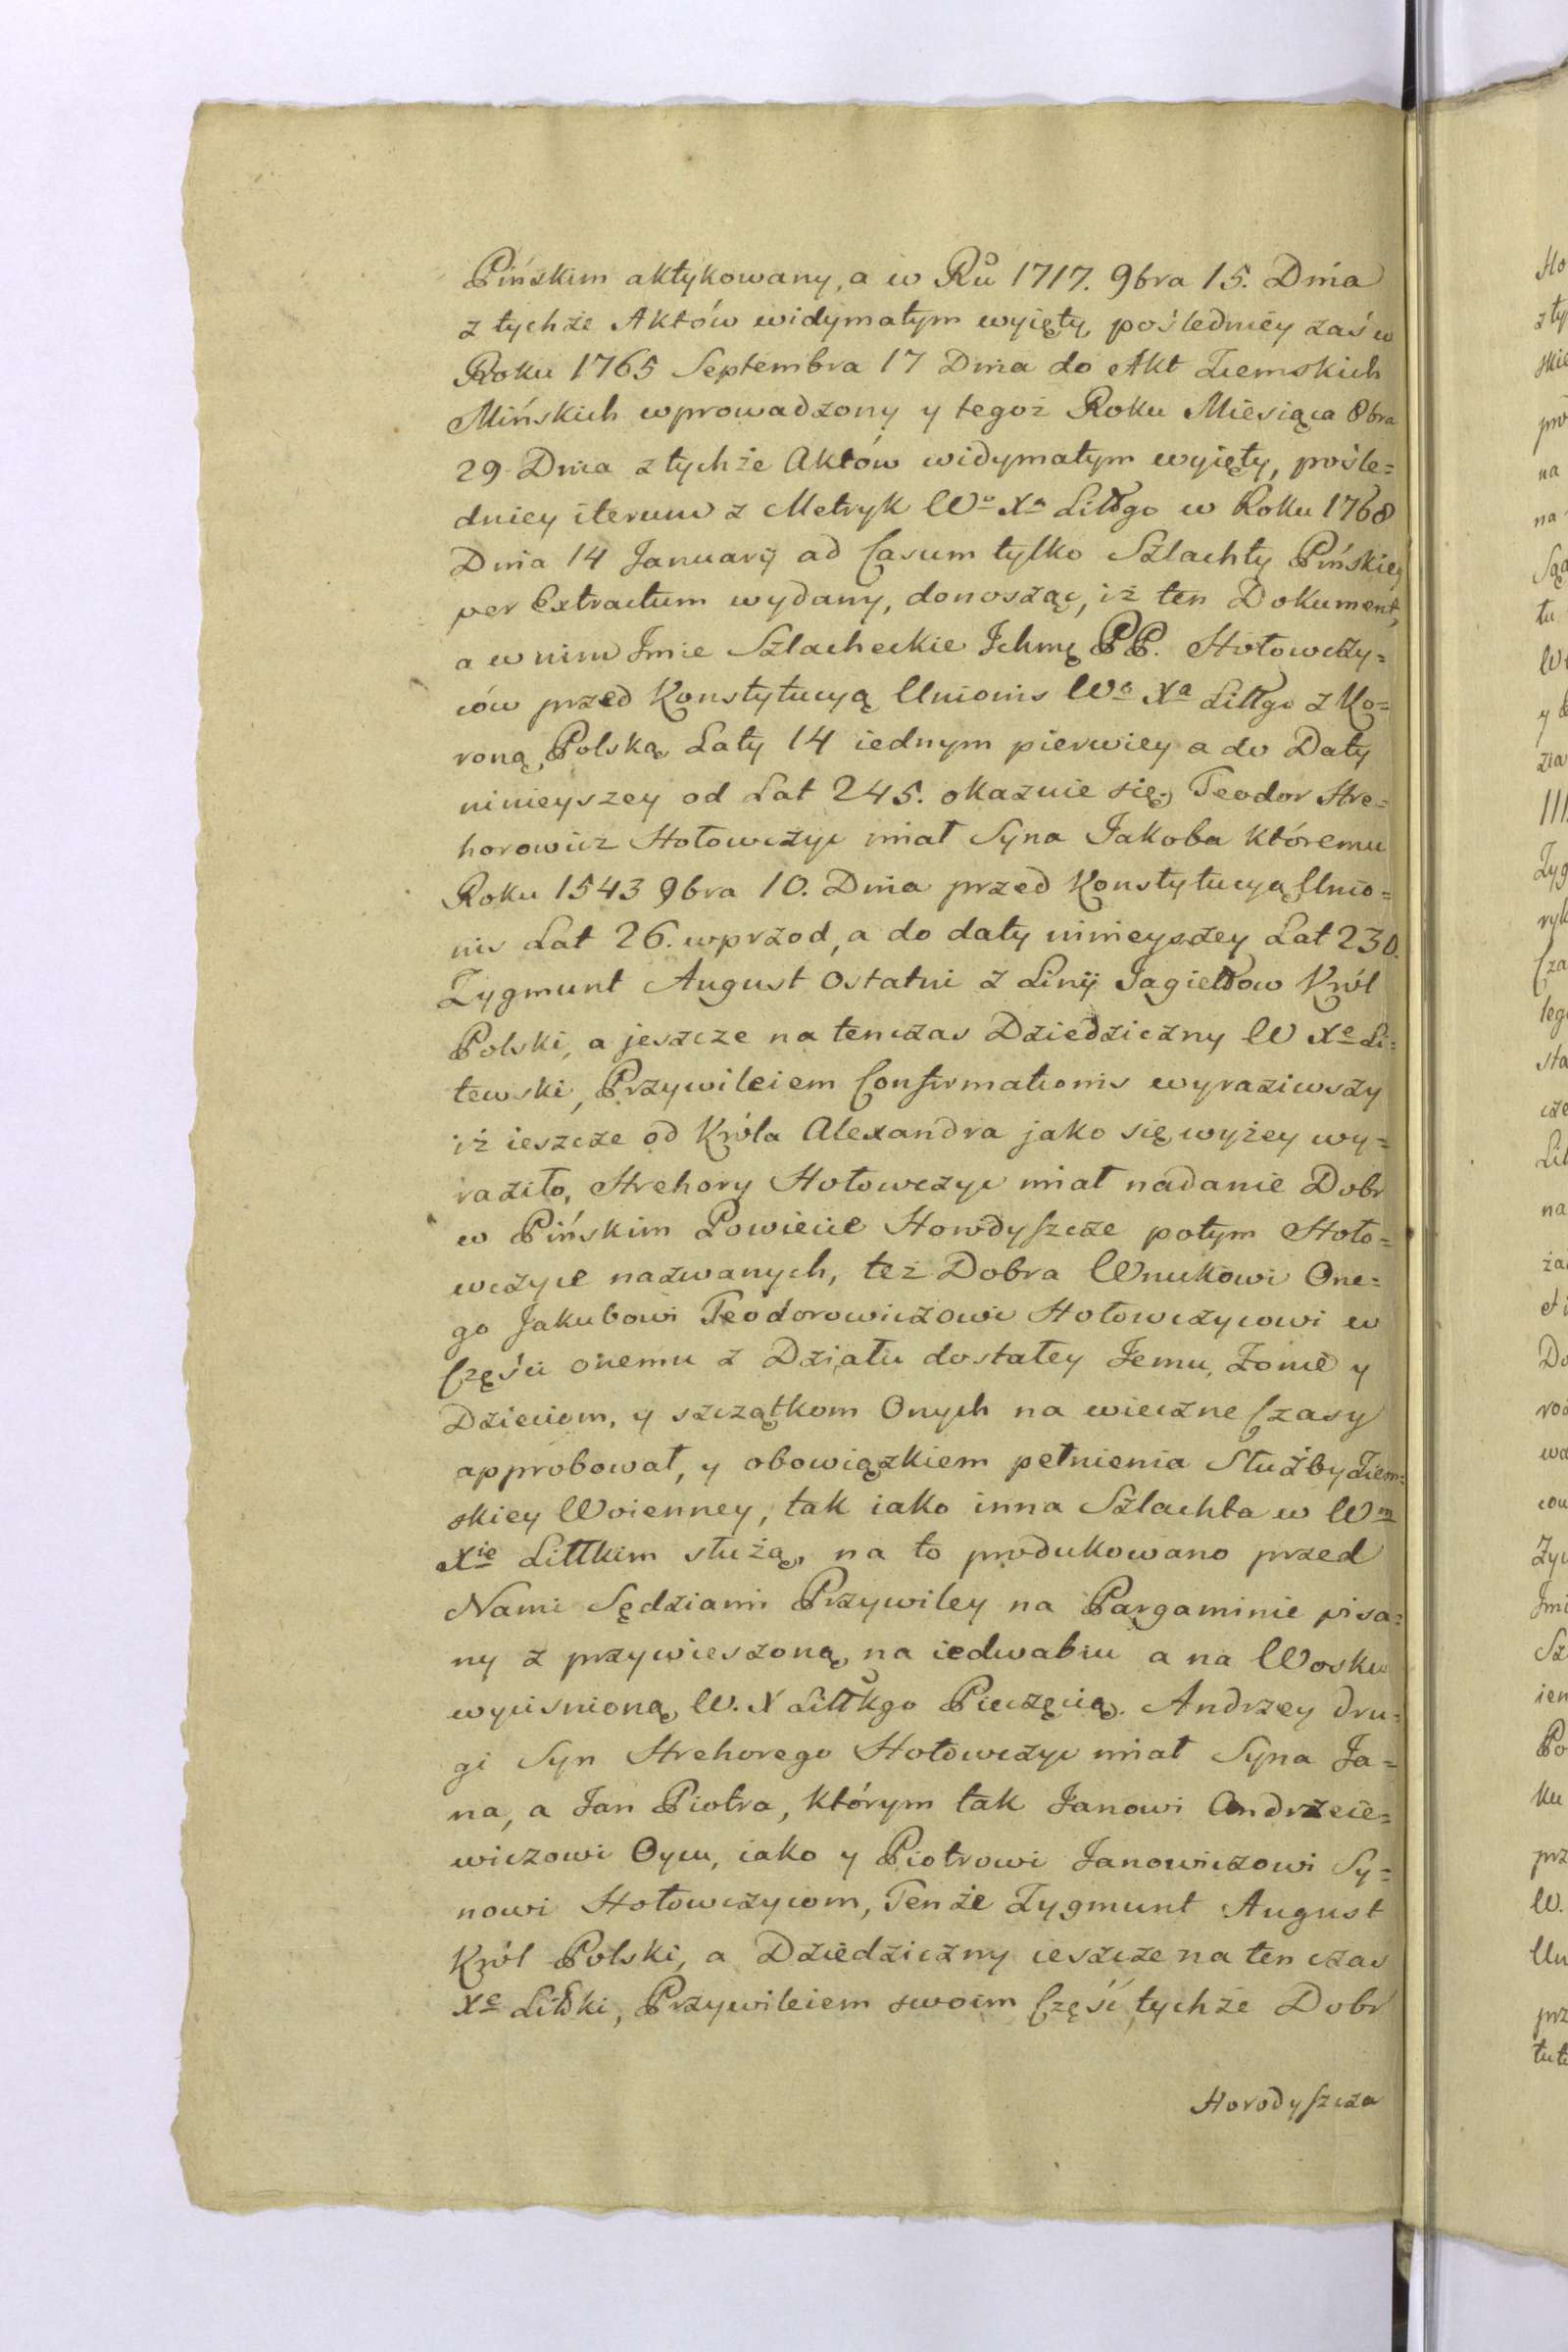 Pińskim aktykowany, a w Rů 1717. 9bra 15. Dnia
z tychże Aktów widymatym wyięty, pośledniéy zaś w
Roku 1765 Septembra 17 Dnia do Akt Ziemskich
Mińskich wprowadzony y tegoż Roku Miesiąca 8bra
29. Dnia z tychże Aktów widymatym wyięty, pośle=
dniey iterum z Metryk Wo Xa Littgo w Roku 1768
Dnia 14 Januarij ad Casum tylko Szlachty Pińskiey
per Extractum wydany, donosząc, iż ten Dokument,
a w nim Imie Szlacheckie Ichmę PP. Hołowczy=
ców przed Konstytucyą Unionis Wo Xa Littgo z Ko=
roną Polską Laty 14 iednym pierwiey a do Daty
ninieyszey od Lat 245. okazuie się, Teodor Hre=
horowicz Hołowczyc miał Syna Jakoba któremu
Roku 1543 9bra 10. Dnia przed Konstytucyą Unio=
nis Lat 26. wprzod, a do daty ninieyszey Lat 230.
Zygmunt August Ostatni z Linij Jagiełłow Król
Polski, a jeszcze na tenczas Dziedziczny W Xe Li=
tewski, Przywileiem Confirmationis wyraziwszy
iż ieszcze od Króla Alexandra jako się wyżey wy=
raziło, Hrehory Hołowczyc miał nadanie Dobr
w Pińskim Powiecie Horodyszcze potym Hoło=
wczyce nazwanych, też Dobra Wnukowi One=
go Jakubowi Teodorowiczowi Hołowczycowi w
Części onemu z Działu dostałey Jemu, Żonie y
Dzieciom, y szczątkom Onych na wieczne Czasy
approbował, y obowiązkiem pełnienia Służby Ziem=
skiey Woienney, tak iako inna Szlachta w Wm
Xie Littkim służą, na to produkowano przed
Nami Sędziami Przywiley na Pargaminie pisa=
ny z przywieszoną na iedwabiu a na Wosku
wyciśnioną W. X Littkgo Pieczęcią. Andrzey dru=
gi Syn Hrehorego Hołowczyc miał Syna Ja=
na, a Jan Piotra, którym tak Janowi Andrzeie=
wiczowi Oycu, iako y Piotrowi Janowiczowi Sy=
nowi Hołowczycom, Tenże Zygmunt August
Król Polski, a Dziedziczny ieszcze na ten czas
Xe Littski, Przywileiem swoim Część tychże Dobr
Horodyszcza